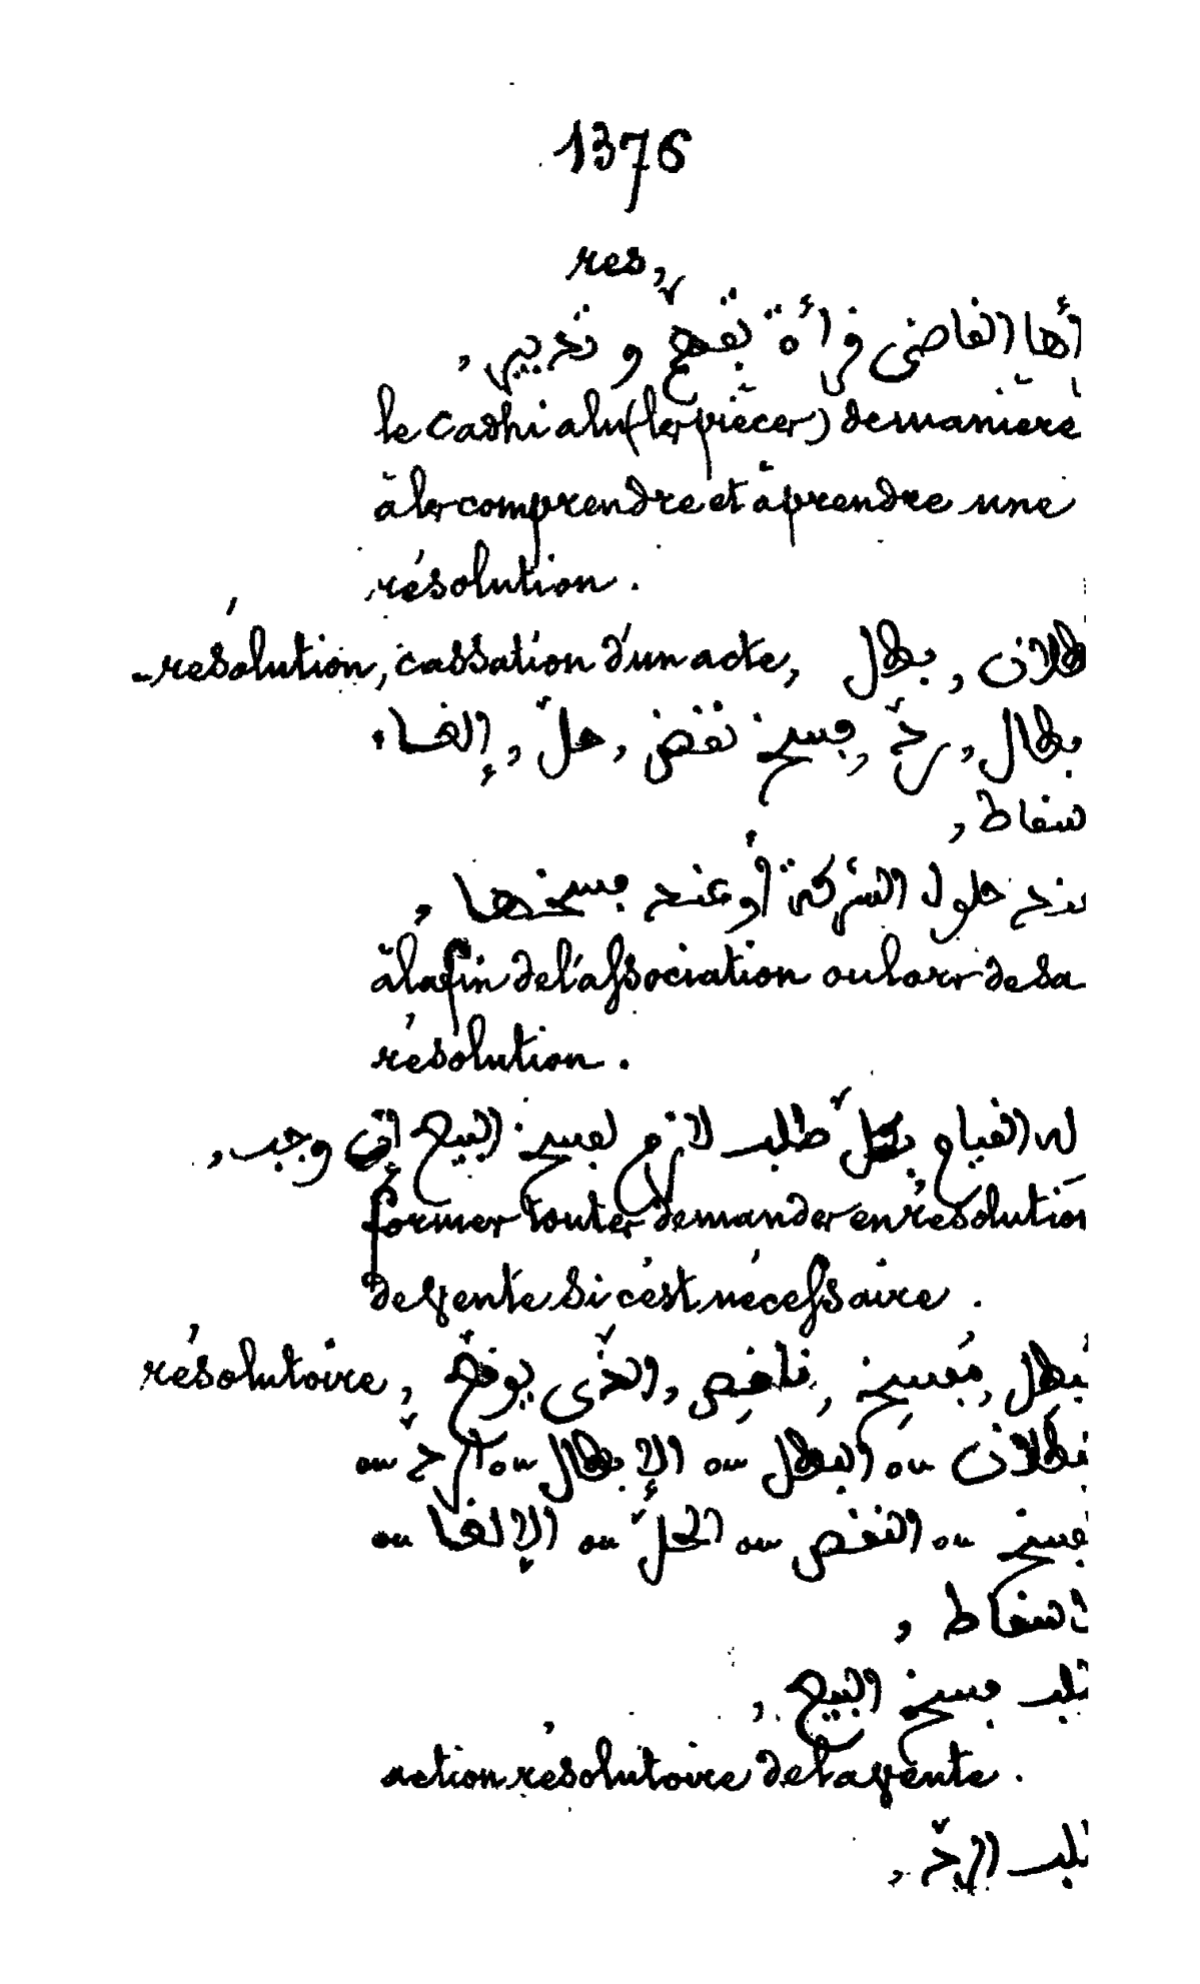 1376
res,
القاضى قرأة تفهّم و تدبير,
le Cadhi a lu (les pièces) de manière
à les comprendre et à prendre une
résolution.
-résolution, cassation d'un acte, بطل,
بطال, ردّ, فسخ نقض, حلّ, إلغاء
سقاط,
حلول الشركة أو عند فسخها,
à la fin de l'association ou lors de sa
résolution.
له القيام بكلّ طلب لازم لفسخ البيع إن وجب,
former toutes demandes en résolution
de vente si c'est nécessaire.
résolutoire, الذّى يوقع, ناقض, مفسخ,
ou البطل ou الإبطال ou الردّ ou
ou النقض ou الحلّ ou الإلغا ou
سقاط,
فسخ البيع,
action résolutoire de la vente.
الردّ,